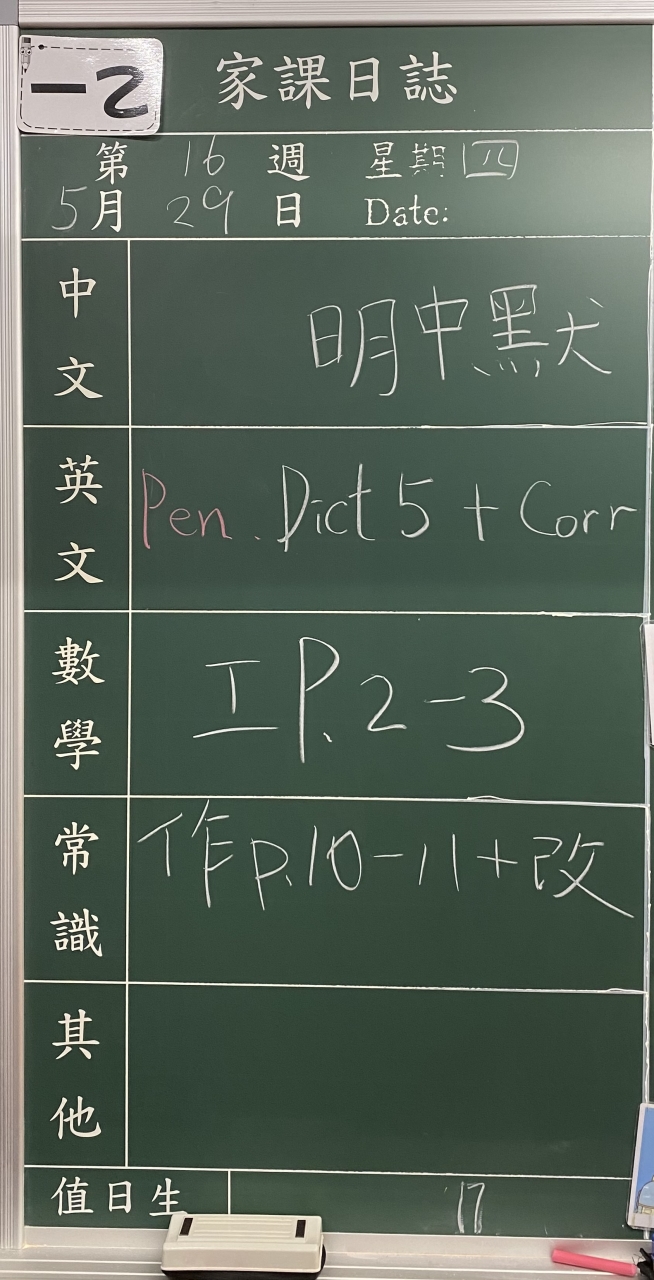 一乙
家課日誌
第 16 週 星期四
5月 29 日 Date:
中文 明中默
英文 Pen. Dict 5 + Corr
數學 工 P.2-3
常識 作 P.10-11+改
其他
值日生 17